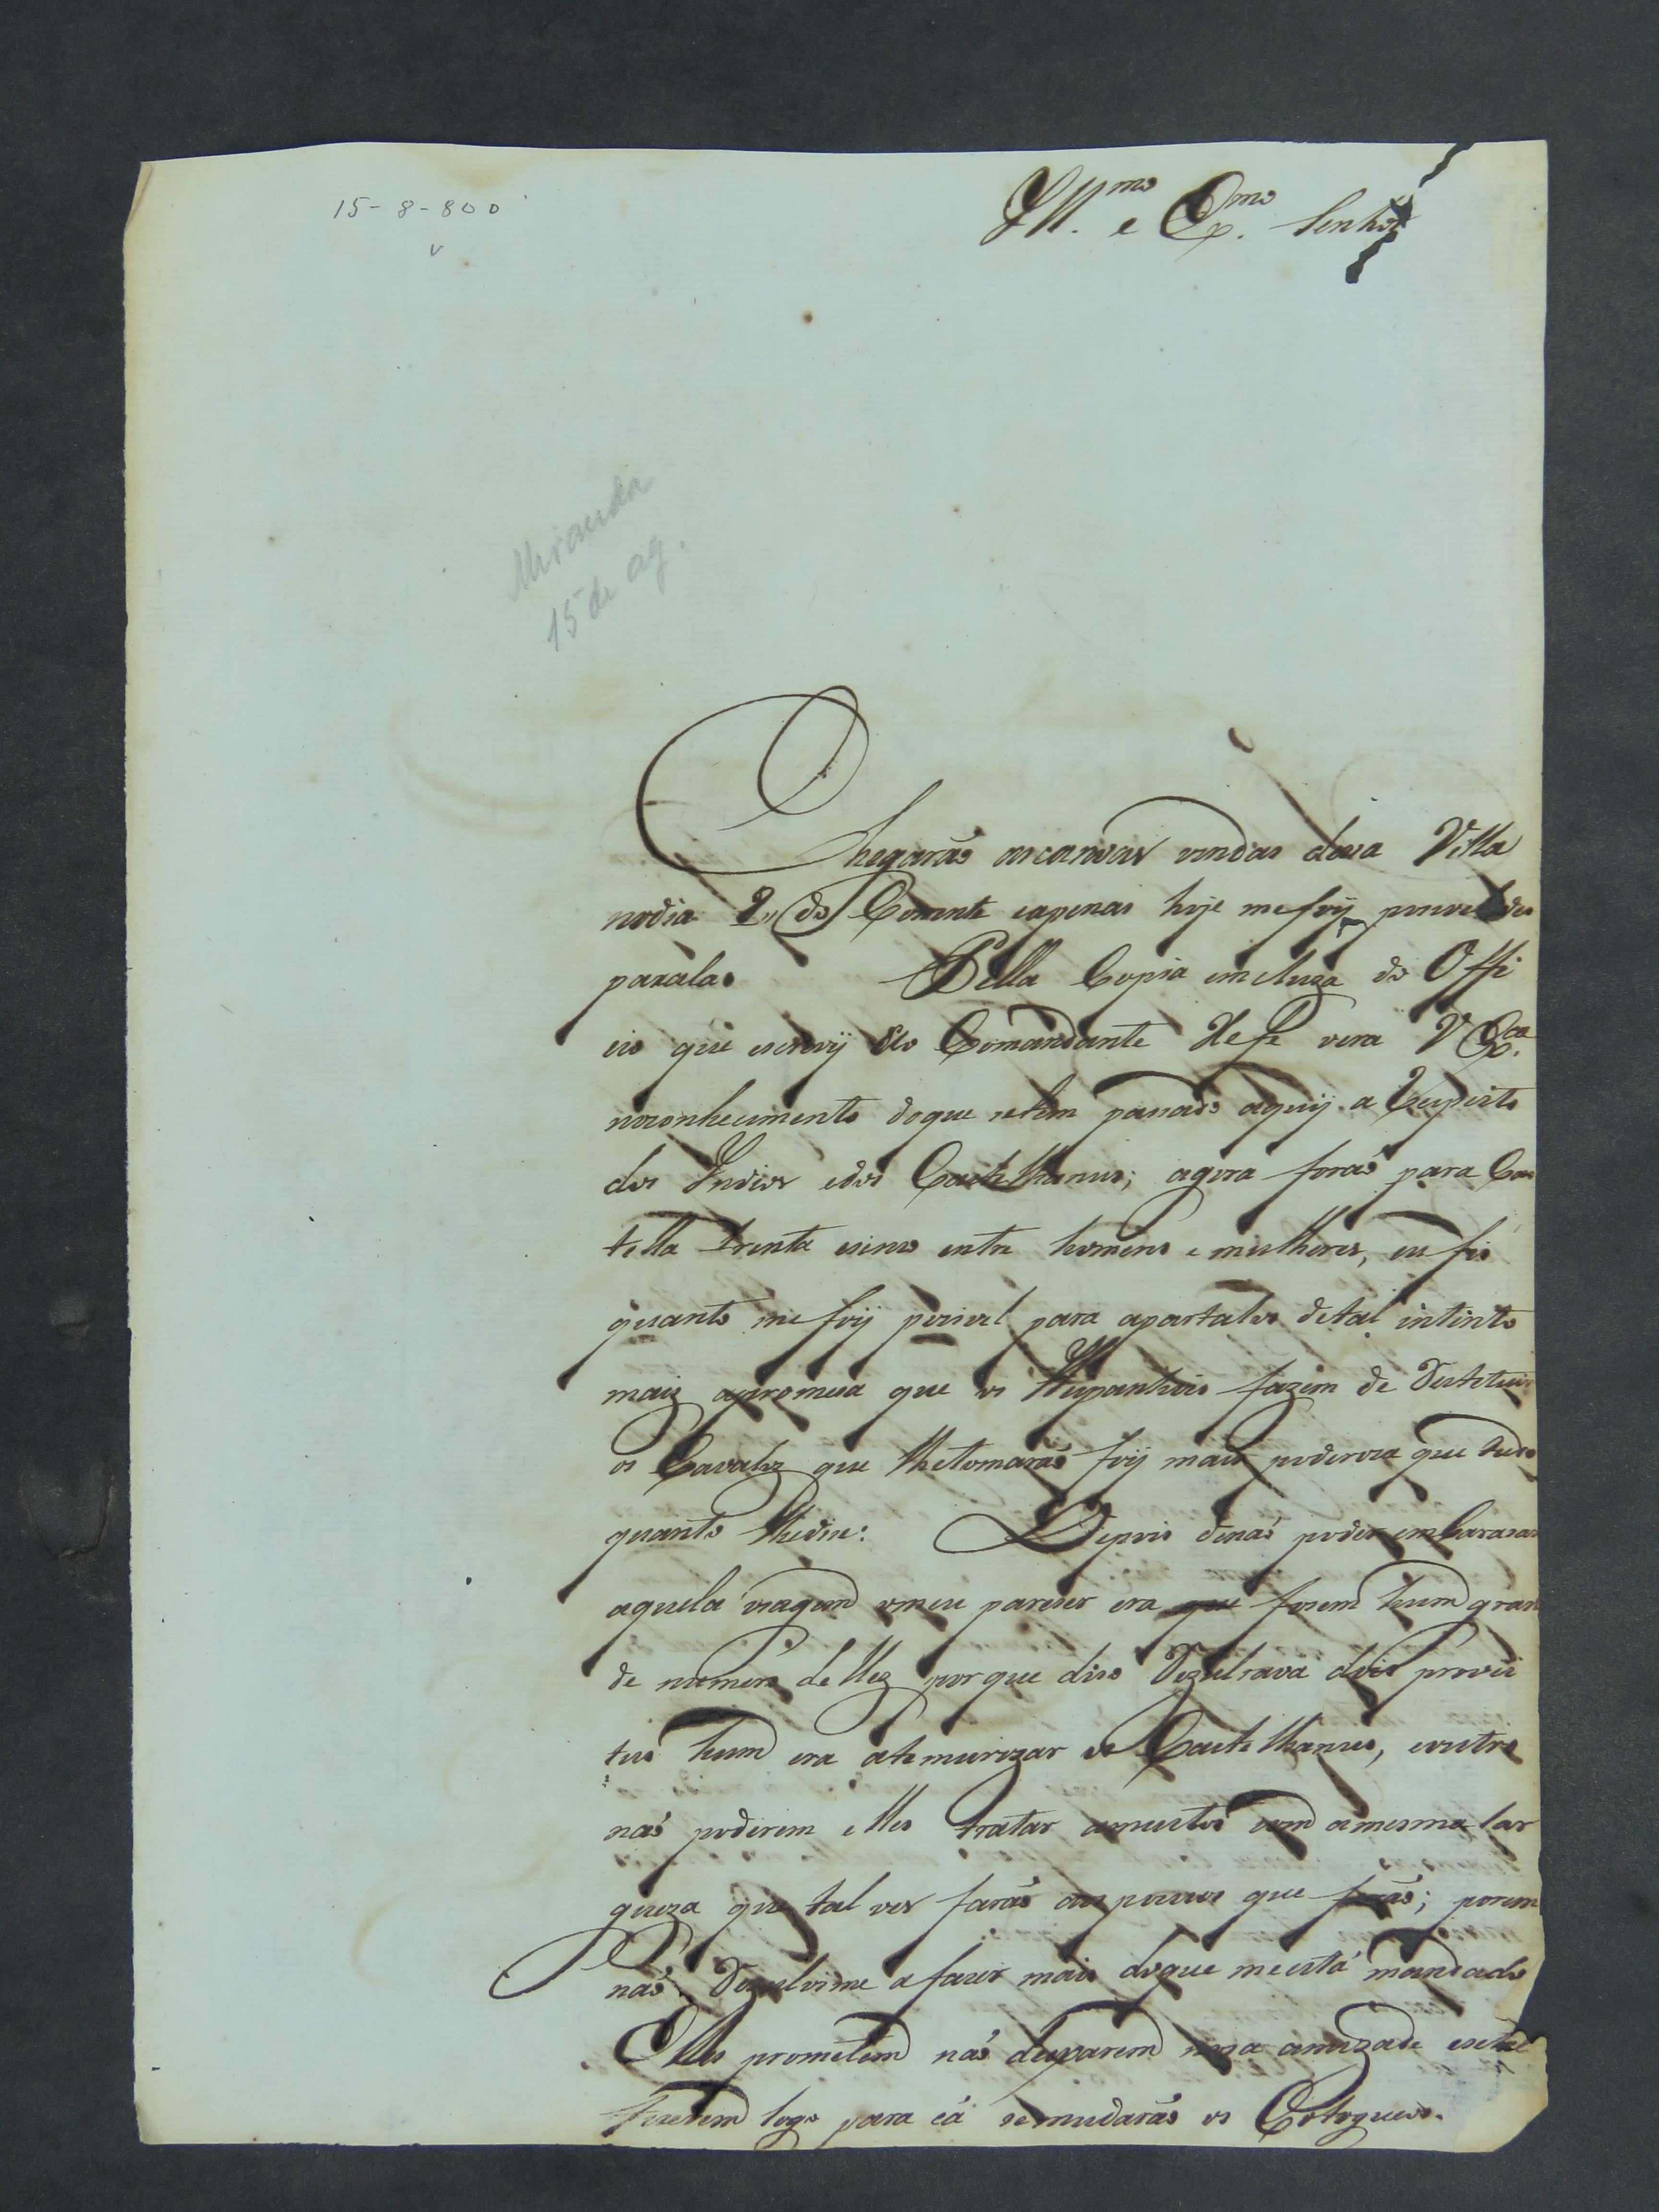 15-8-800
v
Ill.mo e Ex.mo Senhor
Miranda
15 de ag.
Chegarão as canoas vindas desa Villa
no dia 2, do Corrente e apenas hoje me foÿ posivel des
paxalas Pella Copia incluza do Offi
cio que escrevÿ ao Comandante Xefe vera V Ex.ca
no conhecimento do que se tem pasado aquÿ a Respeito
dos Indios e dos Castelhanos; agora forão para Cas
tella trinta e sinco entre homens e mulheres, eu fis
quanto me foÿ posivel para apartalos de tal intinto
mais a promesa que os Hespanhois fazem de Restetuir
os Cavalos que lhe tomarão foÿ mais poderosa que tudo
quanto lhe dise. Depois de não poder embarasar
aquela viagem o meu pareser era que fosem hum gran
de numero delles por que diso Rezultava dois provei
tos hum era atemorizar os Castelhanos, e outro
não poderem elles tratar a muitos com a mesma lar
gueza que tal ves farão aos poucos que forão; porem
não Rezolvime a fazer mais do que me está mandado
Elles prometem não deixarem nosa amizade e se
fizerem logo para cá se mudarão os Cotogueos.